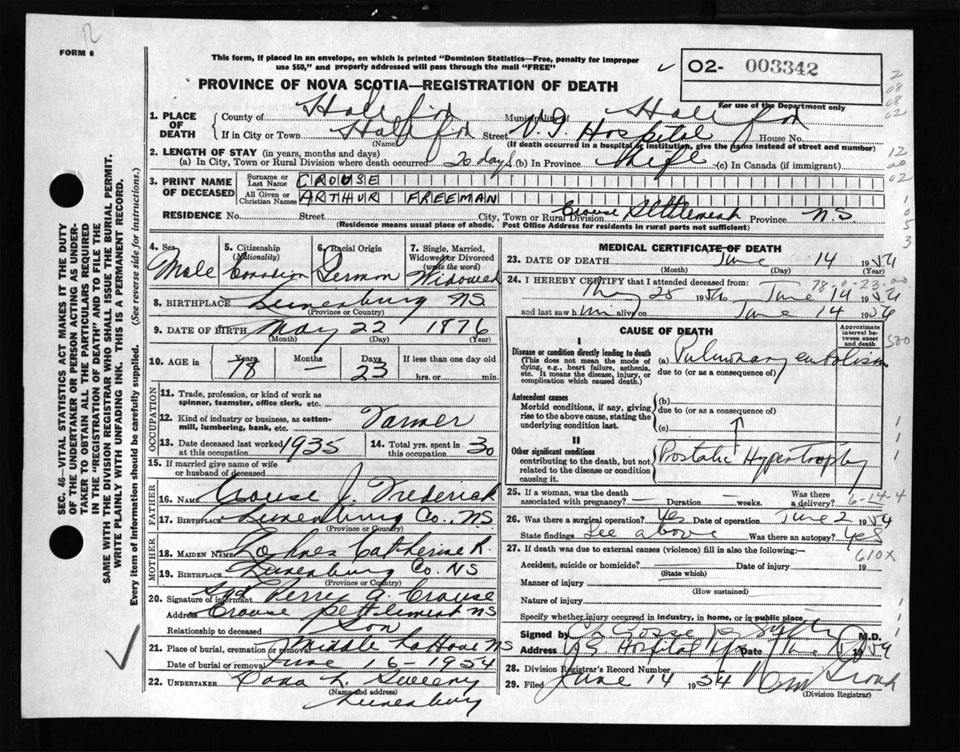 FORM 6
This form, if placed in an envelope, on which is printed "Dominion Statistics—Free, penalty for improper
use $50," and properly addressed will pass through the mail "FREE"
02- 003342
PROVINCE OF NOVA SCOTIA—REGISTRATION OF DEATH
For use of the Department only
1. PLACE OF DEATH
County of Halifax Municipality Halifax
If in City or Town Halifax Street V.G. Hospital House No.
(Name) (If death occurred in a hospital or institution, give the name instead of street and number)
2. LENGTH OF STAY (in years, months and days)
(a) In City, Town or Rural Division where death occurred 20 days (b) in Province life (c) in Canada (if immigrant)
3. PRINT NAME OF DECEASED
Surname or Last Name CROUSE
All Given or Christian Names ARTHUR FREEMAN
RESIDENCE No. Street City, Town or Rural Division Crouse Settlement Province NS
(Residence means usual place of abode. Post Office Address for residents in rural parts not sufficient)
4. Sex Male
5. Citizenship (Nationality) Canadian
6. Racial Origin German
7. Single, Married, Widowed or Divorced (write the word) Widowed
8. BIRTHPLACE Lunenburg NS
(Province or County)
9. DATE OF BIRTH May 22 1876
(Month) (Day) (Year)
10. AGE in Years 78 Months — Days 23 If less than one day old
hrs. or min.
OCCUPATION
11. Trade, profession, or kind of work as spinner, teamster, office clerk, etc.
12. Kind of industry or business, as cotton-mill, lumbering, bank, etc. Farmer
13. Date deceased last worked at this occupation 1935
14. Total yrs. spent in this occupation 30
15. If married give name of wife or husband of deceased
FATHER
16. NAME Crouse J. Frederick
17. BIRTHPLACE Lunenburg Co., NS
(Province or County)
MOTHER
18. MAIDEN NAME Catherine R.
19. BIRTHPLACE Lunenburg Co. NS
(Province or County)
20. Signature of informant Sgd Perry A. Crouse
Address Crouse Settlement NS
Relationship to deceased Son
21. Place of burial, cremation or removal Middle LaHave NS
Date of burial or removal June 16-1954
22. UNDERTAKER L. Sweeny
(Name and address)
Lunenburg
MEDICAL CERTIFICATE OF DEATH
23. DATE OF DEATH June 14 1954
(Month) (Day) (Year)
24. I HEREBY CERTIFY that I attended deceased from:
May 25 1954 to June 14 1954
and last saw him alive on June 14 1954
CAUSE OF DEATH
Approximate interval between onset and death
I
Disease or condition directly leading to death
(This does not mean the mode of dying, e.g., heart failure, asthenia, etc. It means the disease, injury, or complication which caused death.)
(a) Pulmonary embolism
due to (or as a consequence of)
Antecedent causes
Morbid conditions, if any, giving rise to the above cause, stating the underlying condition last.
(b)
due to (or as a consequence of)
(c)
II
Other significant conditions
contributing to the death, but not related to the disease or condition causing it.
Prostatic Hypertrophy
25. If a woman, was the death associated with pregnancy? Duration weeks. Was there a delivery?
6-14-4
26. Was there a surgical operation? Yes Date of operation June 2 1954
State findings See above Was there an autopsy? Yes
610X
27. If death was due to external causes (violence) fill in also the following:-
Accident, suicide or homicide? Date of injury 19
(State which)
Manner of injury
(How sustained)
Nature of injury
Specify whether injury occurred in industry, in home, or in public place.
Signed by M.D.
Address V.G. Hospital Hfx Date June 1954
28. Division Registrar's Record Number
29. Filed June 14 1954
(Division Registrar)
SEC. 46—VITAL STATISTICS ACT MAKES IT THE DUTY
OF THE UNDERTAKER OR PERSON ACTING AS UNDER-
TAKER TO OBTAIN ALL THE PARTICULARS REQUIRED
IN THE "REGISTRATION OF DEATH" AND TO FILE THE
SAME WITH THE DIVISION REGISTRAR WHO SHALL ISSUE THE BURIAL PERMIT.
WRITE PLAINLY WITH UNFADING INK. THIS IS A PERMANENT RECORD.
Every item of information should be carefully supplied. (See reverse side for instructions.)